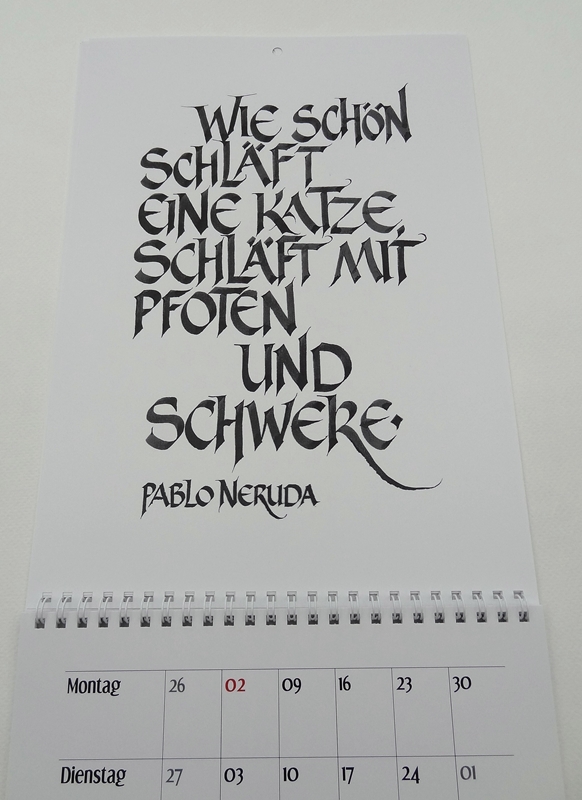 WIE SCHÖN
SCHLÄFT
EINE KATZE,
SCHLÄFT MIT
PFOTEN
UND
SCHWERE·
PABLO NERUDA
Montag 26 02 09 16 23 30
Dienstag 27 03 10 17 24 01